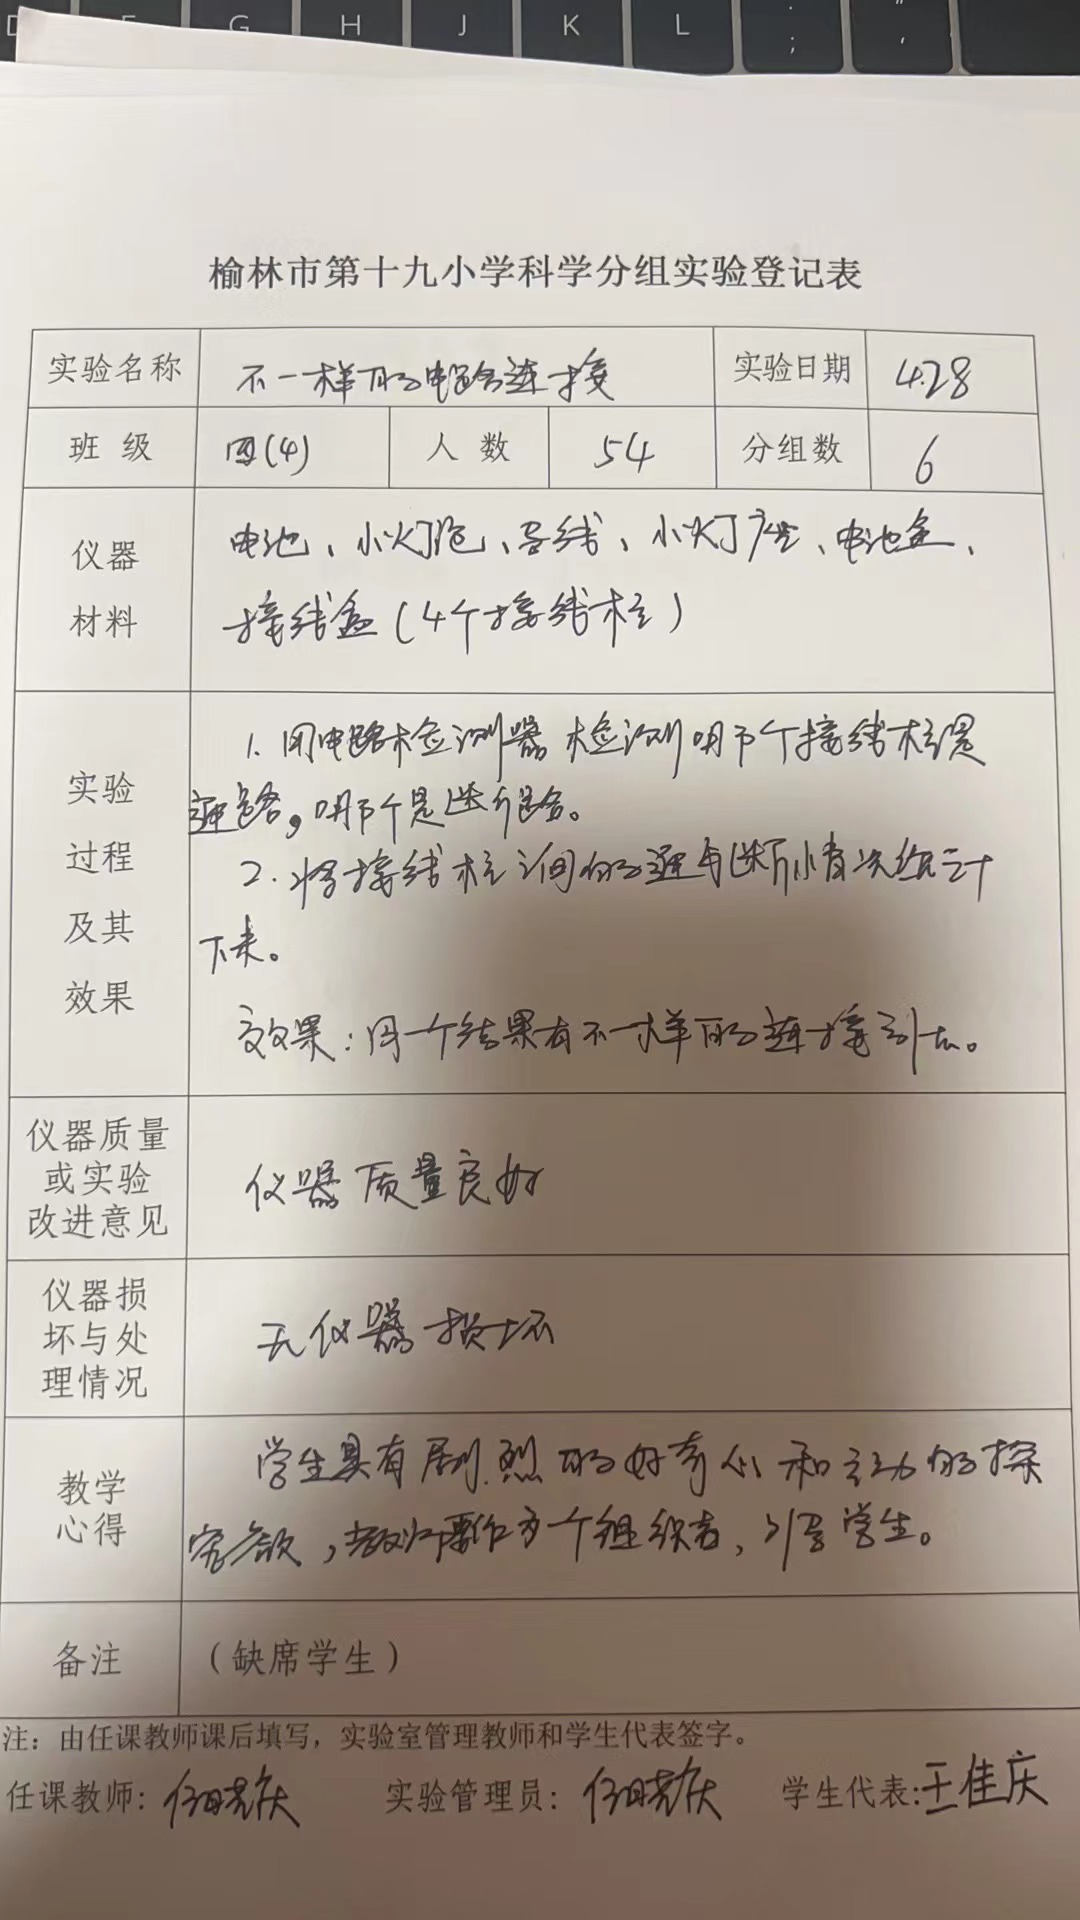 D F G H J K L : ; " ,
榆林市第十九小学科学分组实验登记表
实验名称 不一样的电路连接 实验日期 4.28
班 级 四(4) 人 数 54 分组数 6
仪器
材料
电池、小灯泡、导线、小灯座、电池盒、
接线盒(4个接线柱)
实验
过程
及其
效果
1. 用电路检测器检测哪个接线柱是
通路,哪个是断路。
2. 将接线柱之间的通与断情况统计
下来。
效果:同一个结果有不一样的连接方法。
仪器质量
或实验
改进意见
仪器质量良好
仪器损
坏与处
理情况
无仪器损坏
教学
心得
学生具有剧烈的好奇心和主动的探
究欲,教师要作为一个组织者,引导学生。
备注 (缺席学生)
注:由任课教师课后填写,实验室管理教师和学生代表签字。
任课教师: 任晓庆 实验管理员: 任晓庆 学生代表:王佳庆